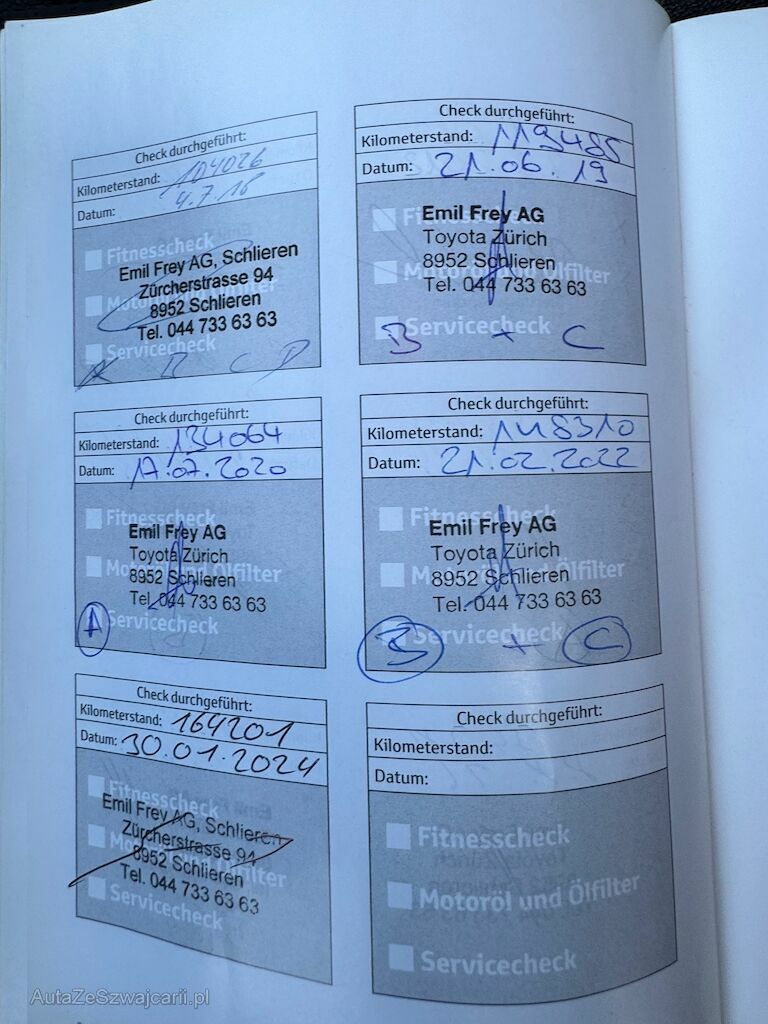 Check durchgeführt:
Kilometerstand: 104026
Datum: 4.7.18
Fitnesscheck
Emil Frey AG, Schlieren
Zürcherstrasse 94
Motoröl und Ölfilter
8952 Schlieren
Tel. 044 733 63 63
Servicecheck
A B C D
Check durchgeführt:
Kilometerstand: 119485
Datum: 21.06.19
Fitnesscheck
Emil Frey AG
Toyota Zürich
8952 Schlieren
Motoröl und Ölfilter
Tel. 044 733 63 63
Servicecheck
B + C
Check durchgeführt:
Kilometerstand: 134064
Datum: 17.07.2020
Fitnesscheck
Emil Frey AG
Toyota Zürich
Motoröl und Ölfilter
8952 Schlieren
Tel. 044 733 63 63
A
Servicecheck
Check durchgeführt:
Kilometerstand: 148310
Datum: 21.02.2022
Fitnesscheck
Emil Frey AG
Toyota Zürich
Motoröl und Ölfilter
8952 Schlieren
Tel. 044 733 63 63
Servicecheck
B + C
Check durchgeführt:
Kilometerstand: 164201
Datum: 30.01.2024
Fitnesscheck
Emil Frey AG, Schlieren
Zürcherstrasse 94
Motoröl und Ölfilter
8952 Schlieren
Tel. 044 733 63 63
Servicecheck
Check durchgeführt:
Kilometerstand:
Datum:
Fitnesscheck
Motoröl und Ölfilter
Servicecheck
AutaZeSzwajcarii.pl